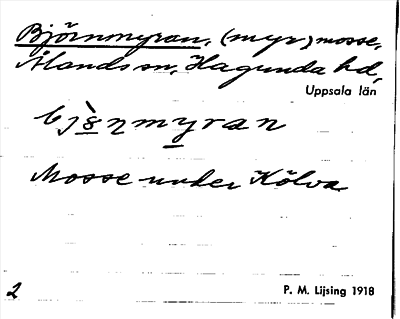 Björnmyran, (myr) mosse,
Ålands sn, Hagunda hd,
Uppsala län
Mosse under Kölva
2 P. M. Lijsing 1918